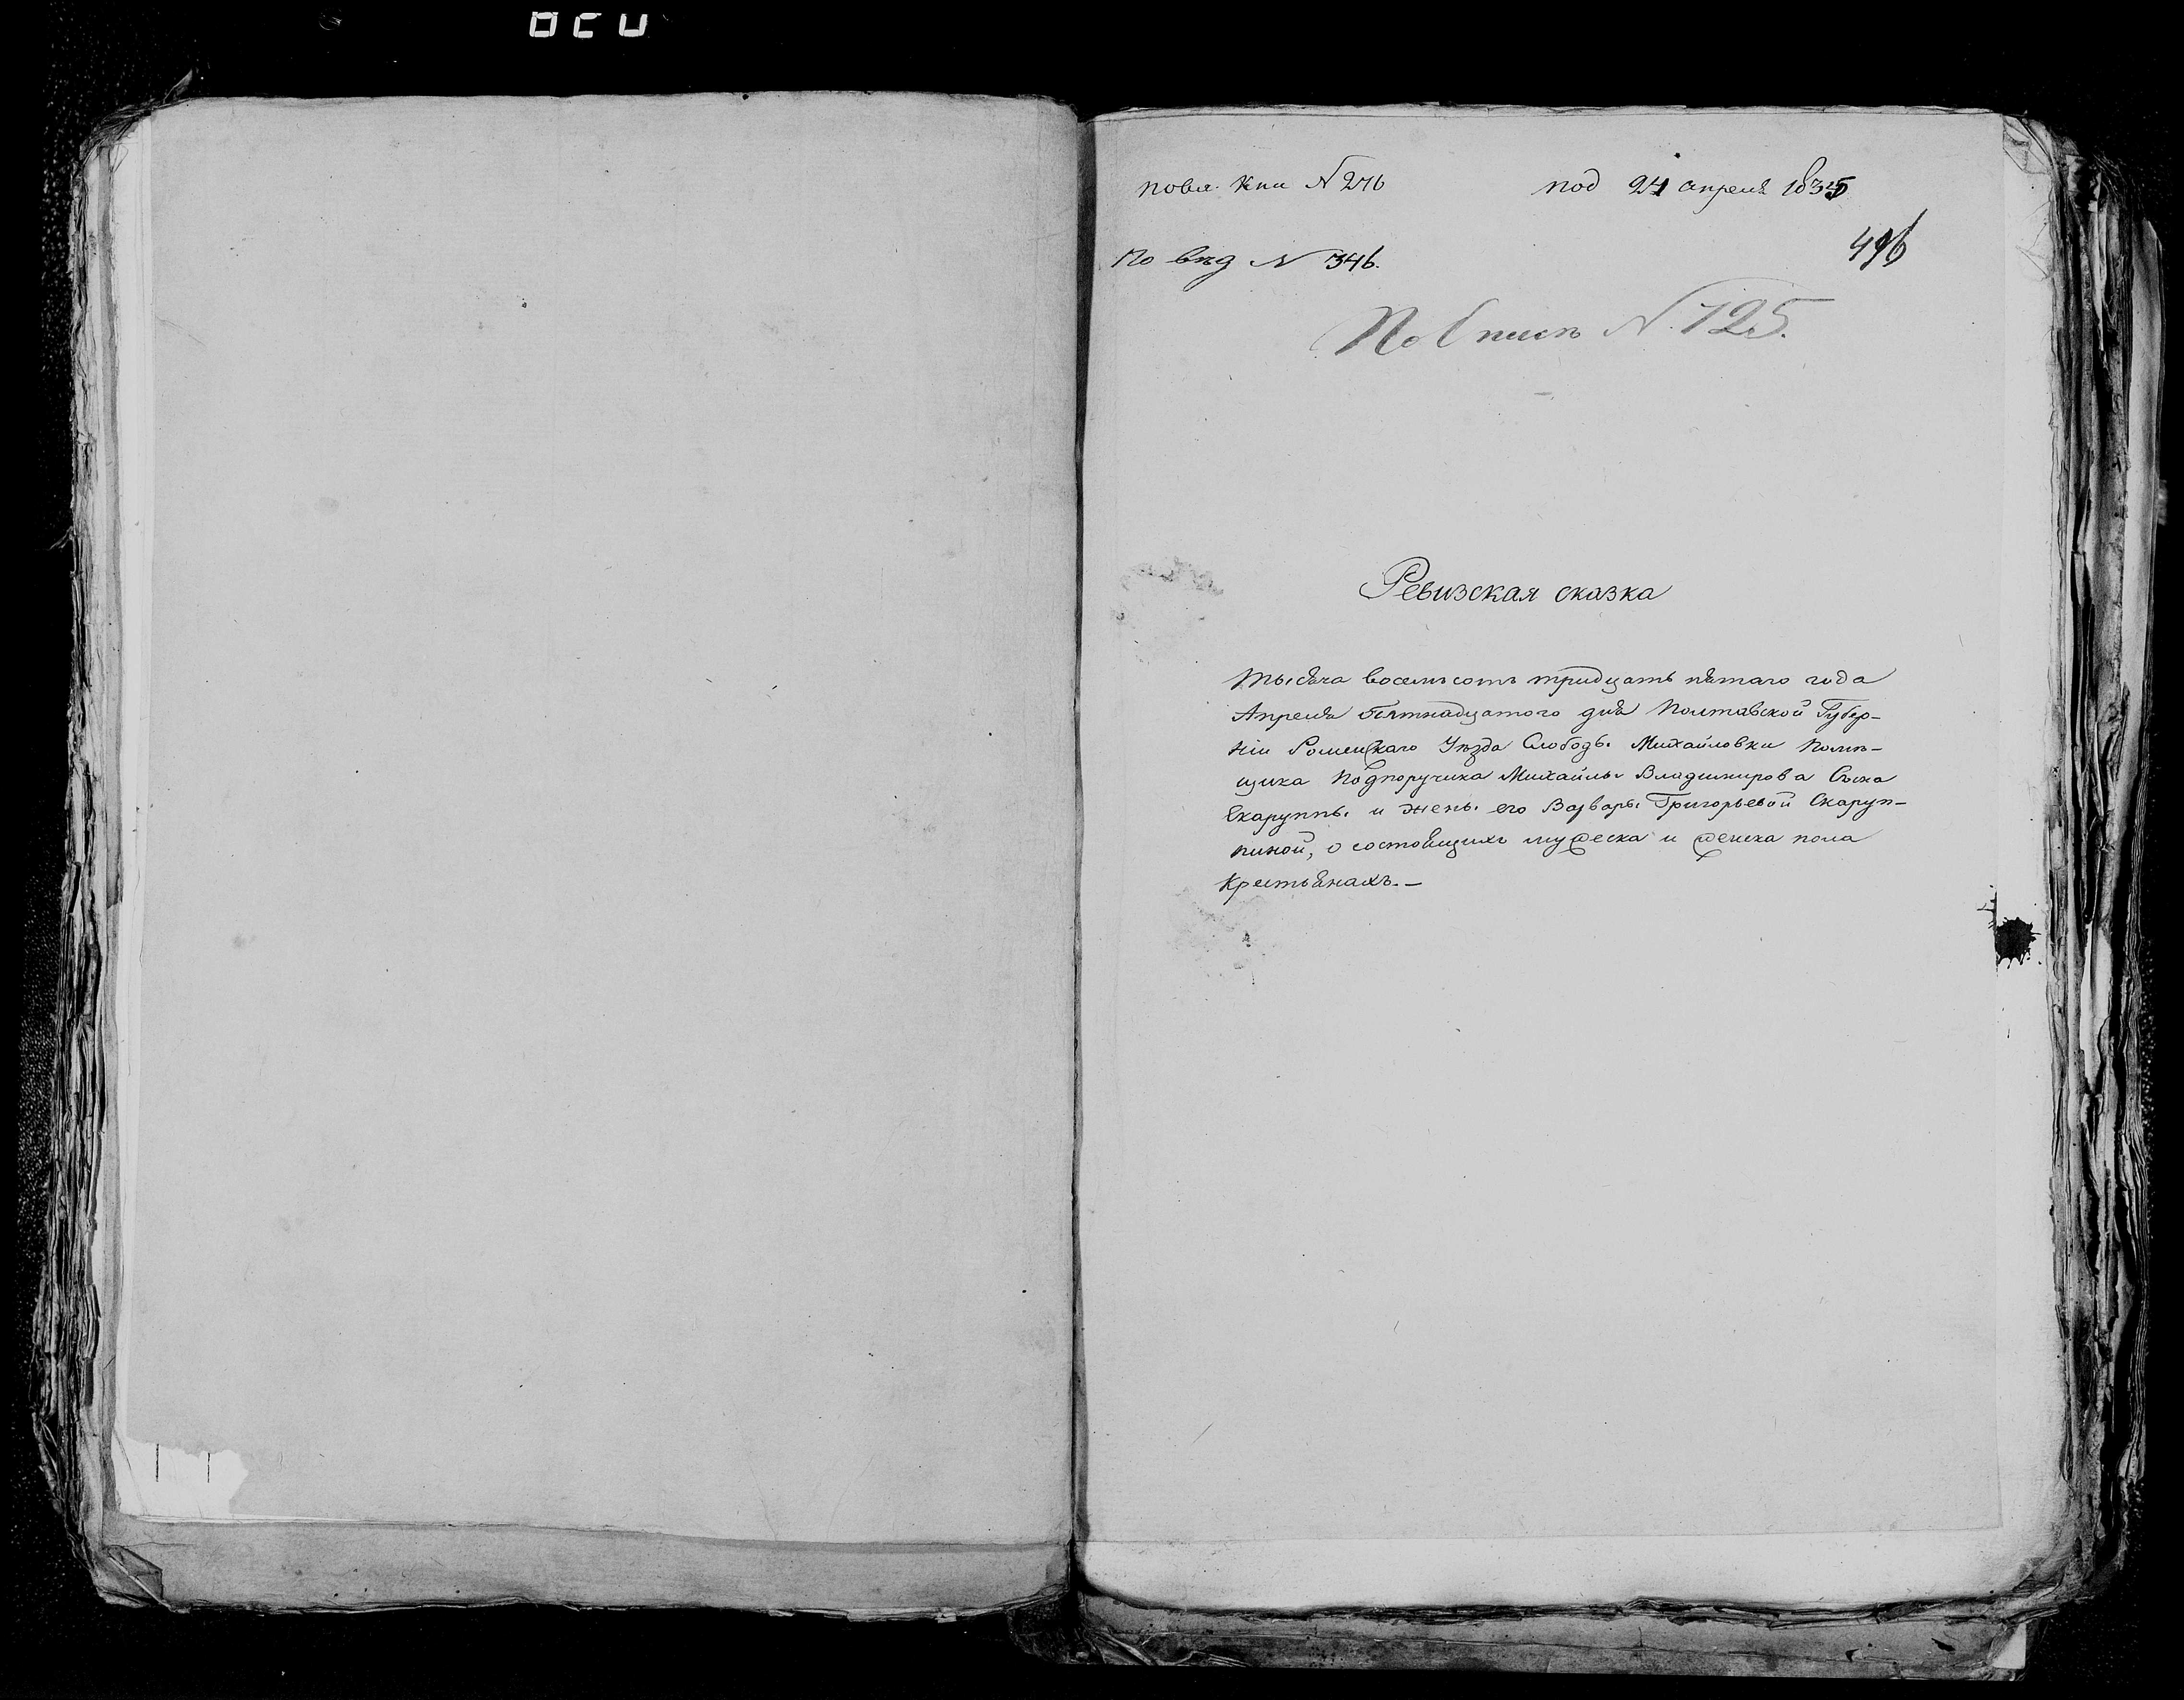 по вх. кни N 246 под 24 апреля 1835
По вѣд N 346.
496
По Описи N. 125.
Ревизская сказка
Тысяча восемьсотъ тридцать пятаго года
Апреля Пятнадцатого дня Полтавской Губер-
ніи Роменскаго Уѣзда Слободы Михайловки Помѣ-
щика Подпоручика Михайлы Владимирова Сына
Скаруппы и жены его Варвары Григорьевой Скаруп-
пиной, о состоящихъ мужеска и женска пола
Крестьянахъ.-